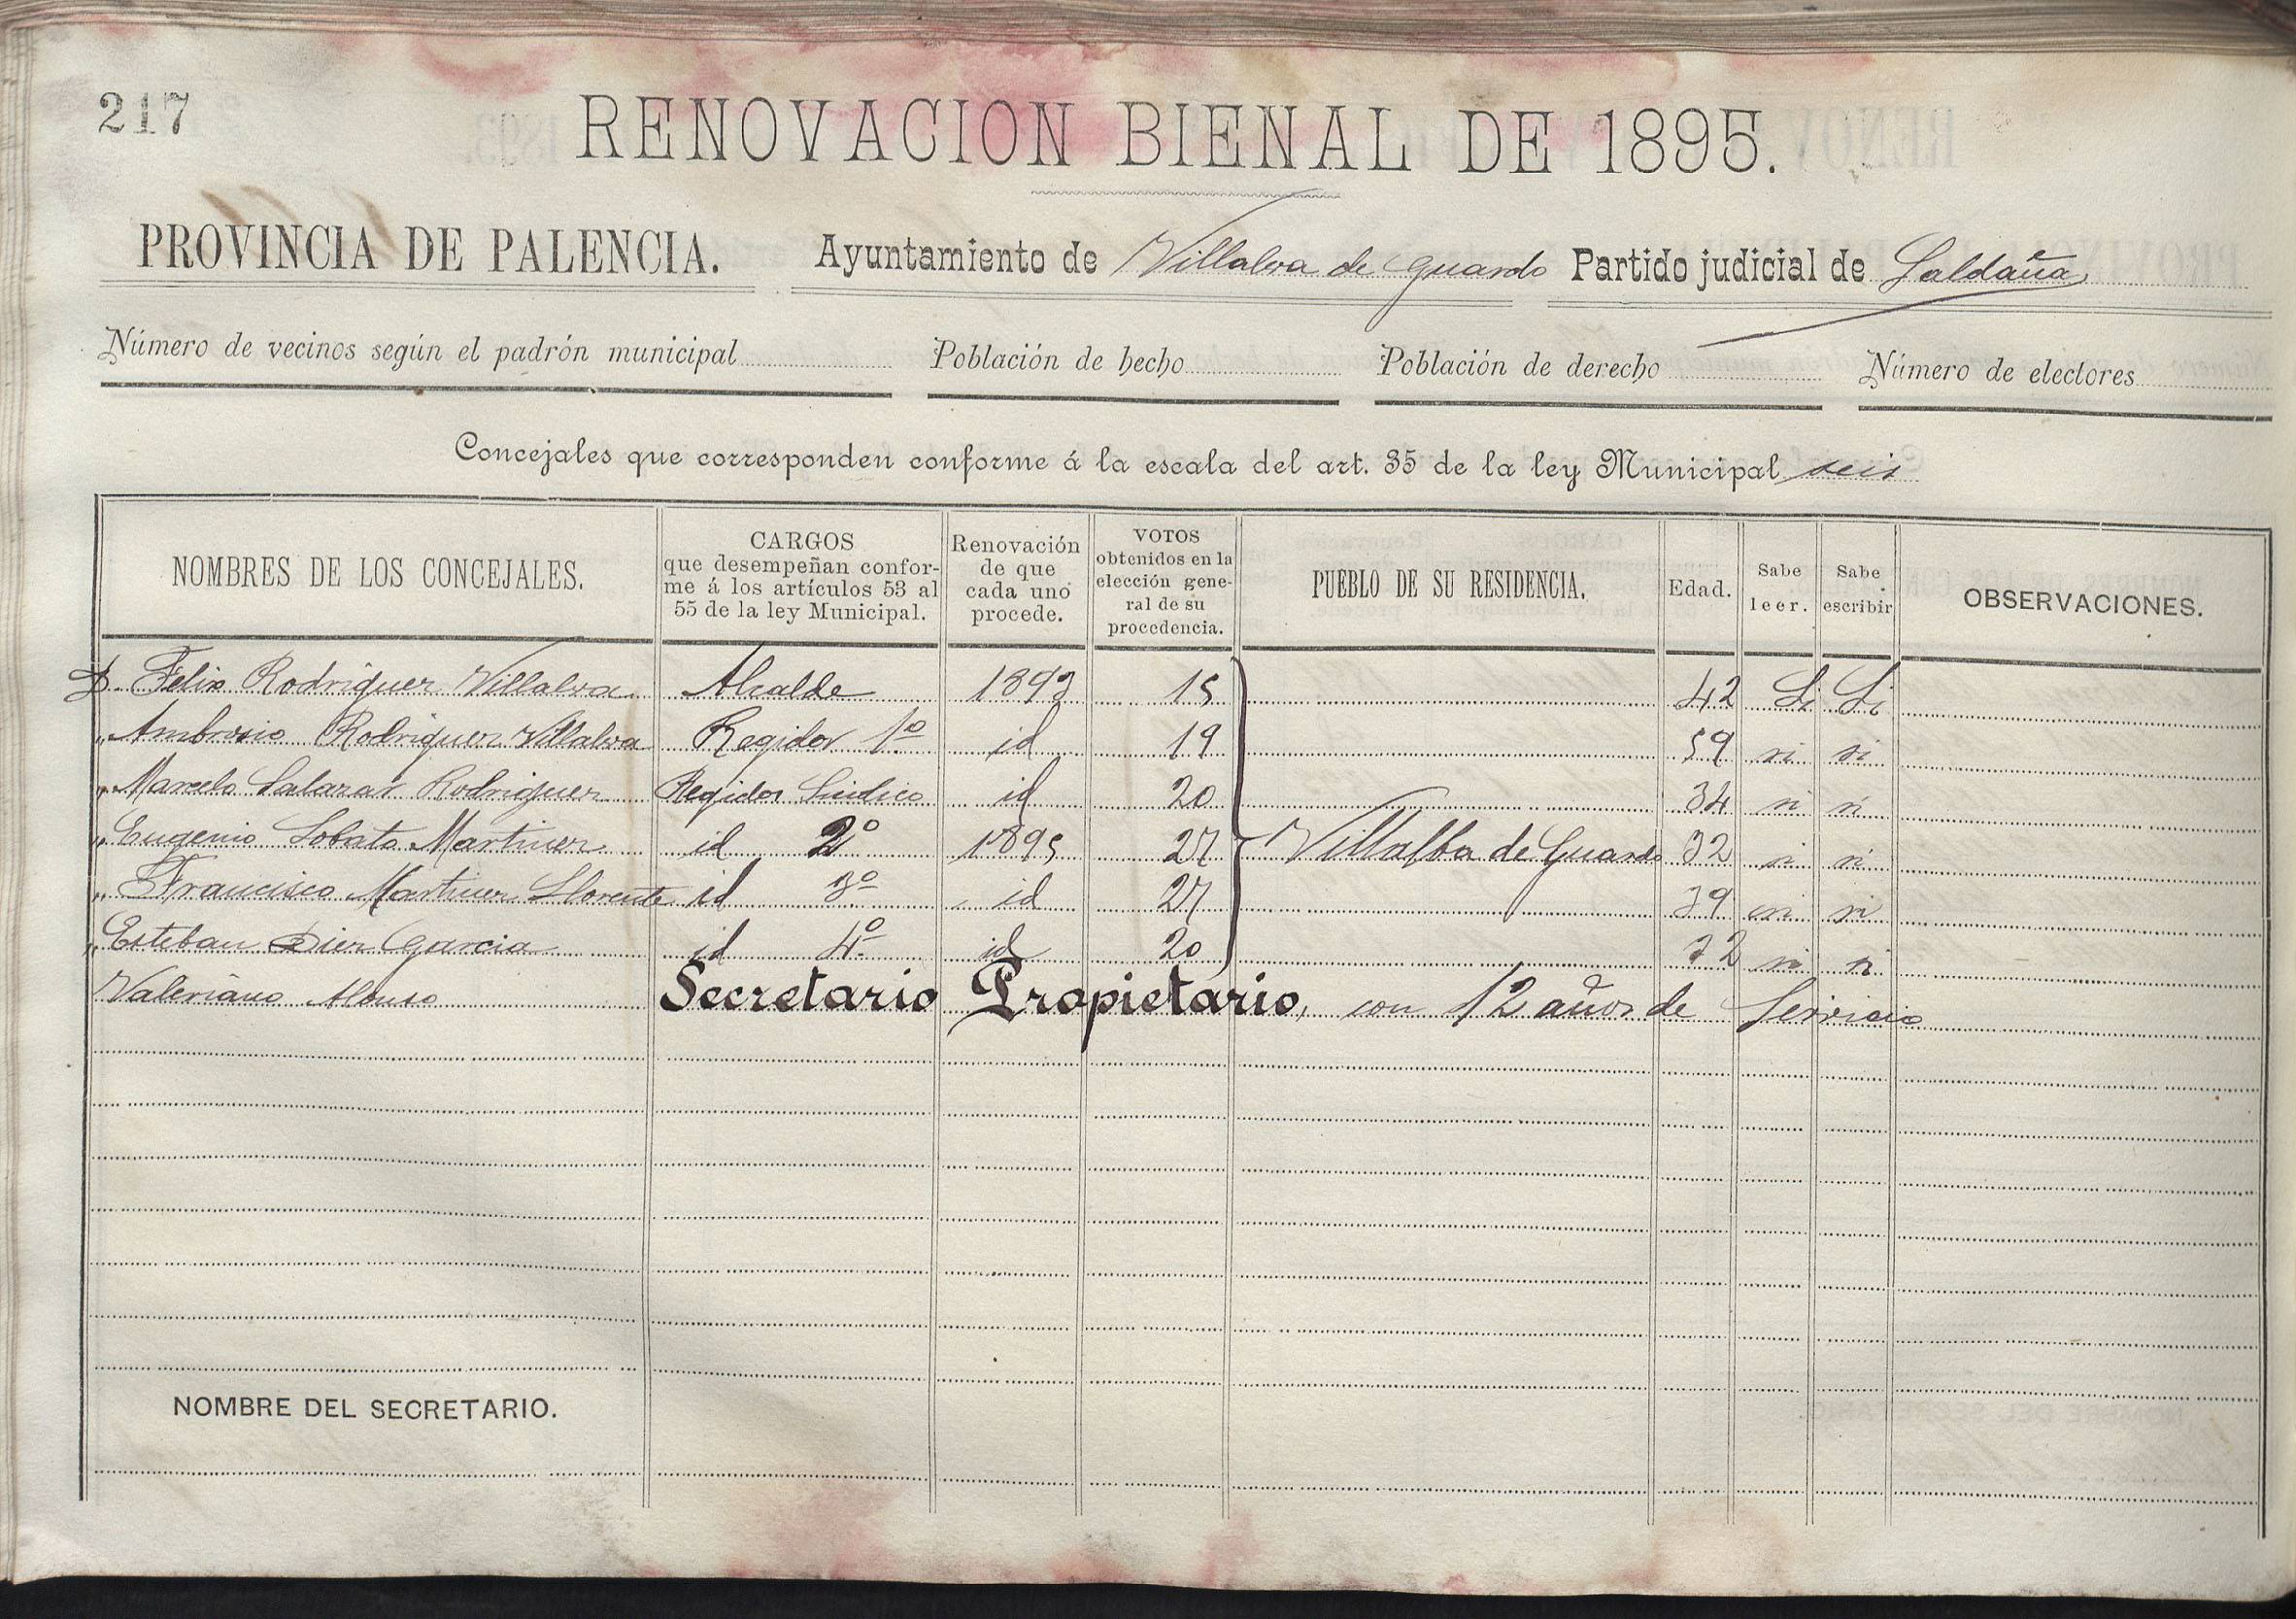 217
RENOVACION BIENAL DE 1895.
PROVINCIA DE PALENCIA. Ayuntamiento de Villalva de Guardo Partido judicial de Saldaña
Número de vecinos según el padrón municipal Población de hecho Población de derecho Número de electores
Concejales que corresponden conforme á la escala del art. 35 de la ley Municipal seis
NOMBRES DE LOS CONCEJALES. CARGOS que desempeñan confor- me á los artículos 53 al 55 de la ley Municipal. Renovación de que cada uno procede. VOTOS obtenidos en la elección gene- ral de su procedencia. PUEBLO DE SU RESIDENCIA. Edad. Sabe leer. Sabe escribir OBSERVACIONES.
D. Felix Rodriguez Villalva Alcalde 1893 15 42 Si Si
" Ambrosio Rodriguez Villalva Regidor 1º id 19 59 si si
" Marcelo Salazar Rodriguez Regidor Sindico id 20 34 si si
" Eugenio Lobato Martinez id 2º 1895 27 Villalba de Guardo 32 si si
" Francisco Martinez Llorente id 3º id 27 39 si si
" Esteban Diez Garcia id 4º id 20 32 si si
Valeriano Alonso Secretario Propietario, con 12 años de Servicio
NOMBRE DEL SECRETARIO.